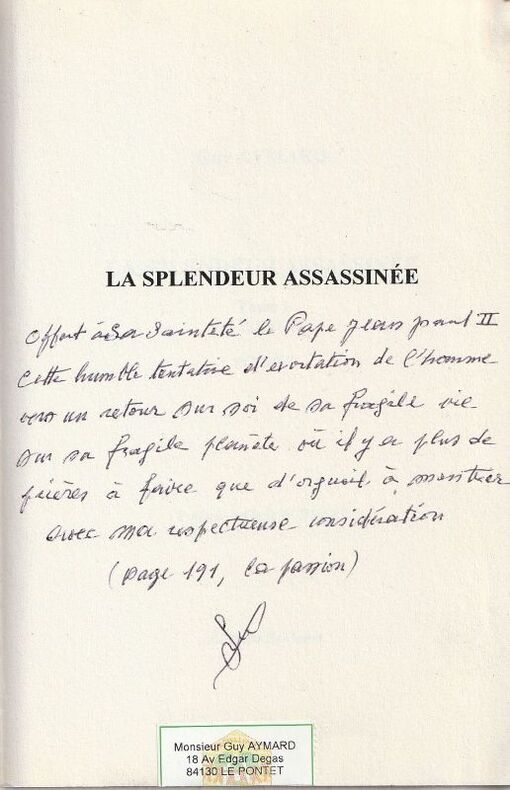 LA SPLENDEUR ASSASSINÉE
Offert à Sa Sainteté le Pape Jean paul II
Cette humble tentative d'exortation de l'homme
vers un retour sur soi de sa fragile vie
sur sa fragile planète où il y a plus de
prières à faire que d'orgueil à montrer
avec ma respectueuse considération
(page 191, la passion)
Monsieur Guy AYMARD
18 Av Edgar Degas
84130 LE PONTET